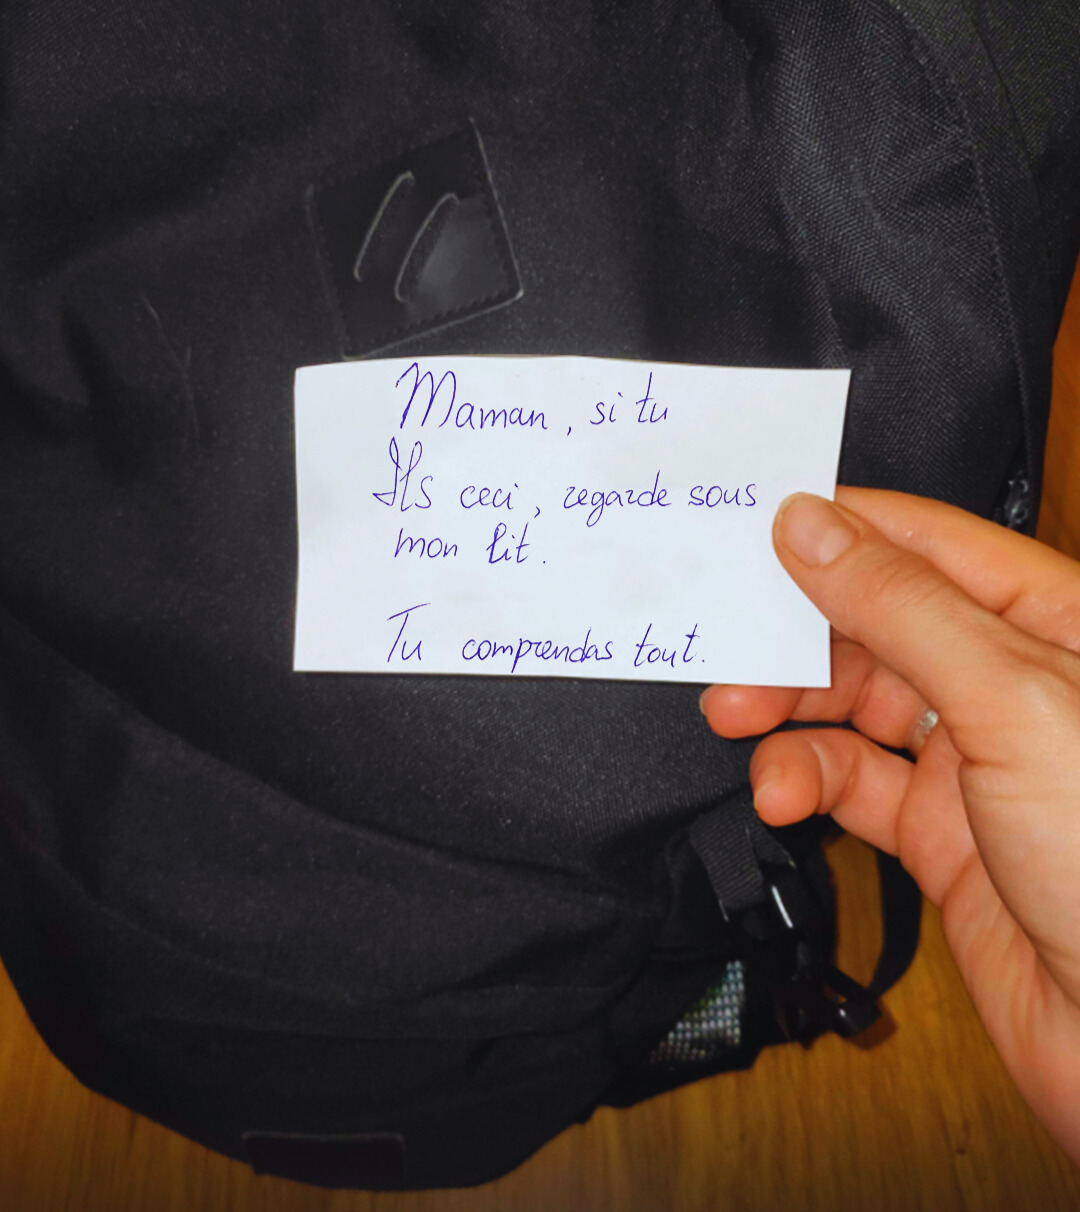 Maman, si tu
Ils ceci, regarde sous
mon lit.
Tu comprendas tout.